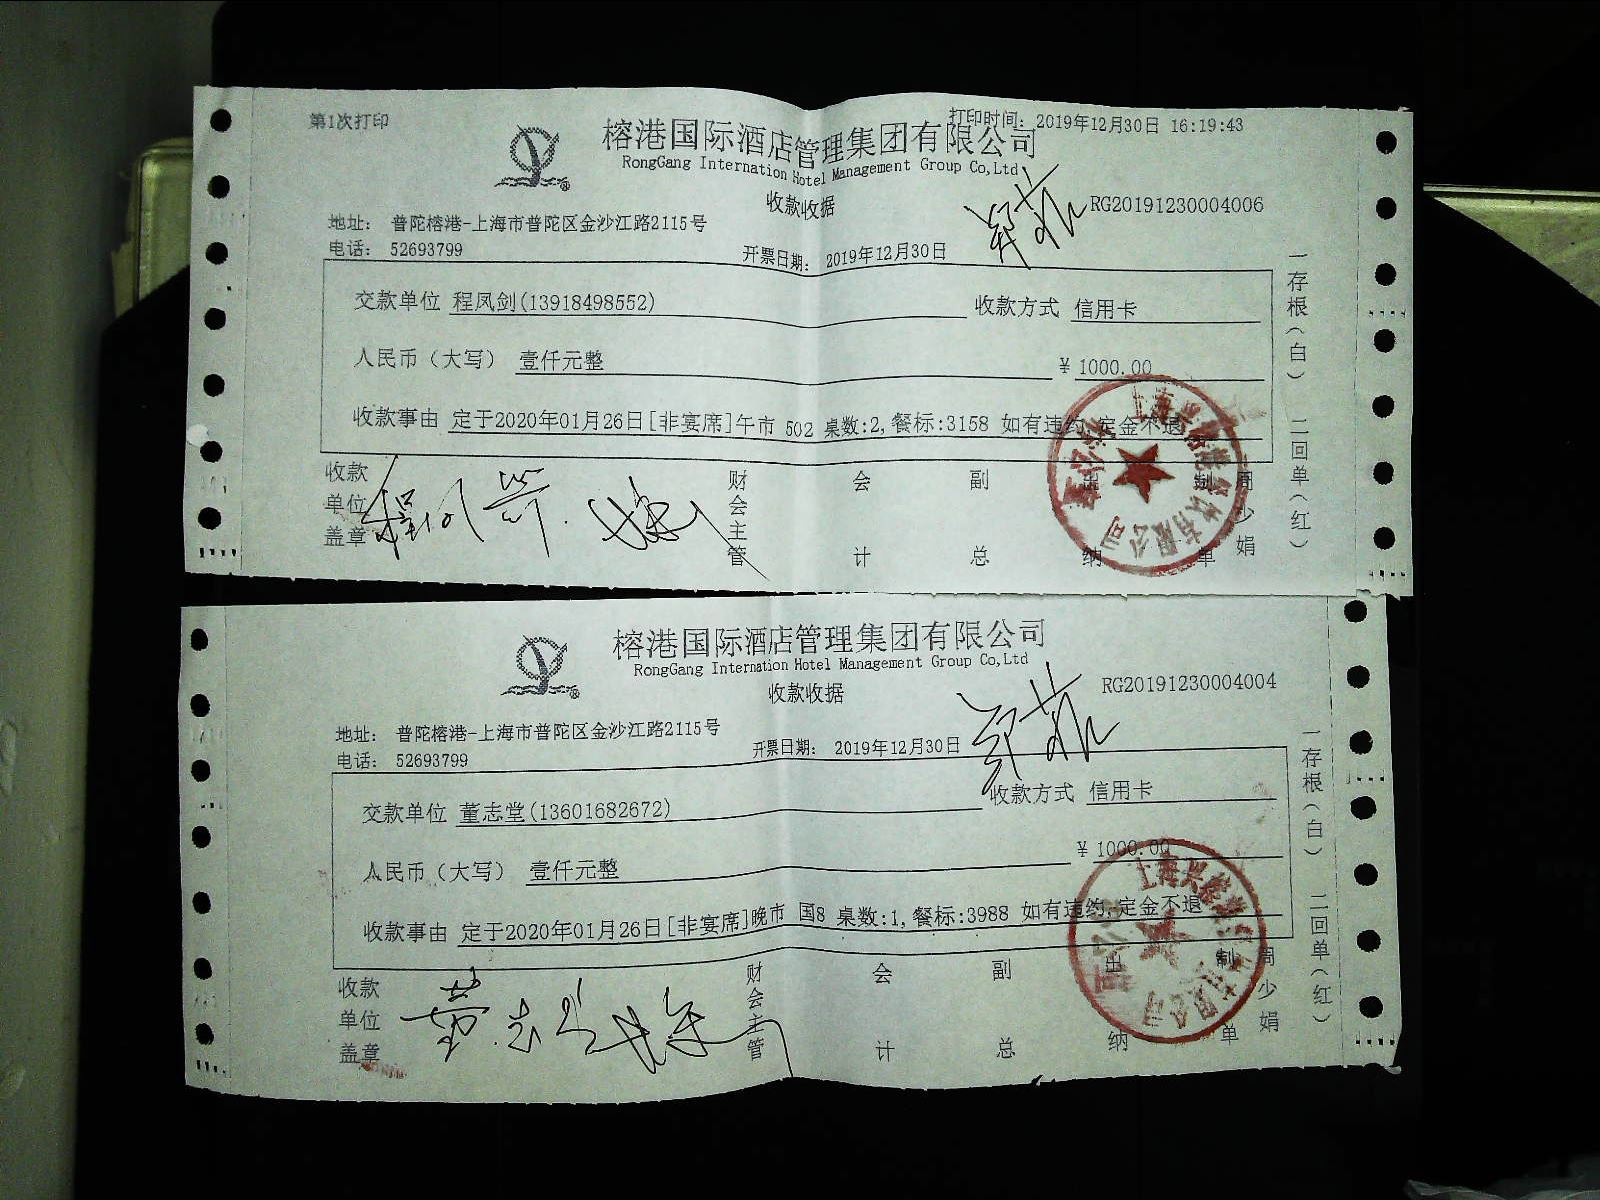 第1次打印
打印时间: 2019年12月30日 16:19:43
榕港国际酒店管理集团有限公司
RongGang Internation Hotel Management Group Co,Ltd
收款收据
郑燕 RG20191230004006
地址: 普陀榕港-上海市普陀区金沙江路2115号
电话: 52693799
开票日期: 2019年12月30日
交款单位 程凤剑(13918498552) 收款方式 信用卡
人民币（大写） 壹仟元整 ¥ 1000.00
收款事由 定于2020年01月26日[非宴席]午市 502 桌数:2,餐标:3158 如有违约,定金不退
收款单位盖章 财会主管 会计 副总 出纳 制单 周少娟
一存根(白) 二回单(红)
榕港国际酒店管理集团有限公司
RongGang Internation Hotel Management Group Co,Ltd
收款收据
RG20191230004004
地址: 普陀榕港-上海市普陀区金沙江路2115号
电话: 52693799
开票日期: 2019年12月30日
交款单位 董志堂(13601682672) 收款方式 信用卡
人民币（大写） 壹仟元整 ¥ 1000.00
收款事由 定于2020年01月26日[非宴席]晚市 国8 桌数:1,餐标:3988 如有违约,定金不退
收款单位盖章 董志堂 财会主管 会计 副总 出纳 制单 周少娟
一存根(白) 二回单(红)